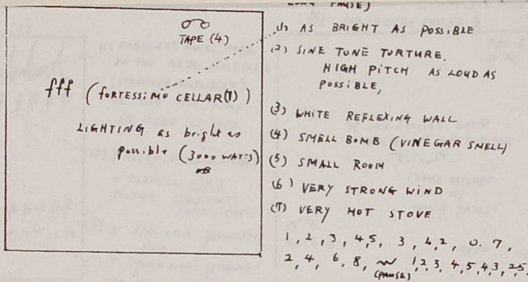 LONG PAUSE)
TAPE (4)
fff (FORTESSIMO CELLAR(1))
LIGHTING as bright as
possible (3000 WATTS)
(1) AS BRIGHT AS POSSIBLE
(2) SINE TONE TORTURE.
HIGH PITCH AS LOUD AS
POSSIBLE,
(3) WHITE REFLEXING WALL
(4) SMELL BOMB (VINEGAR SMELL)
(5) SMALL ROOM
(6) VERY STRONG WIND
(7) VERY HOT STOVE
1, 2, 3, 4, 5, 3, 4, 2, 0. 7,
2, 4, 6, 8, 1, 2, 3, 4, 5, 4, 3, 25,
(PAUSE)